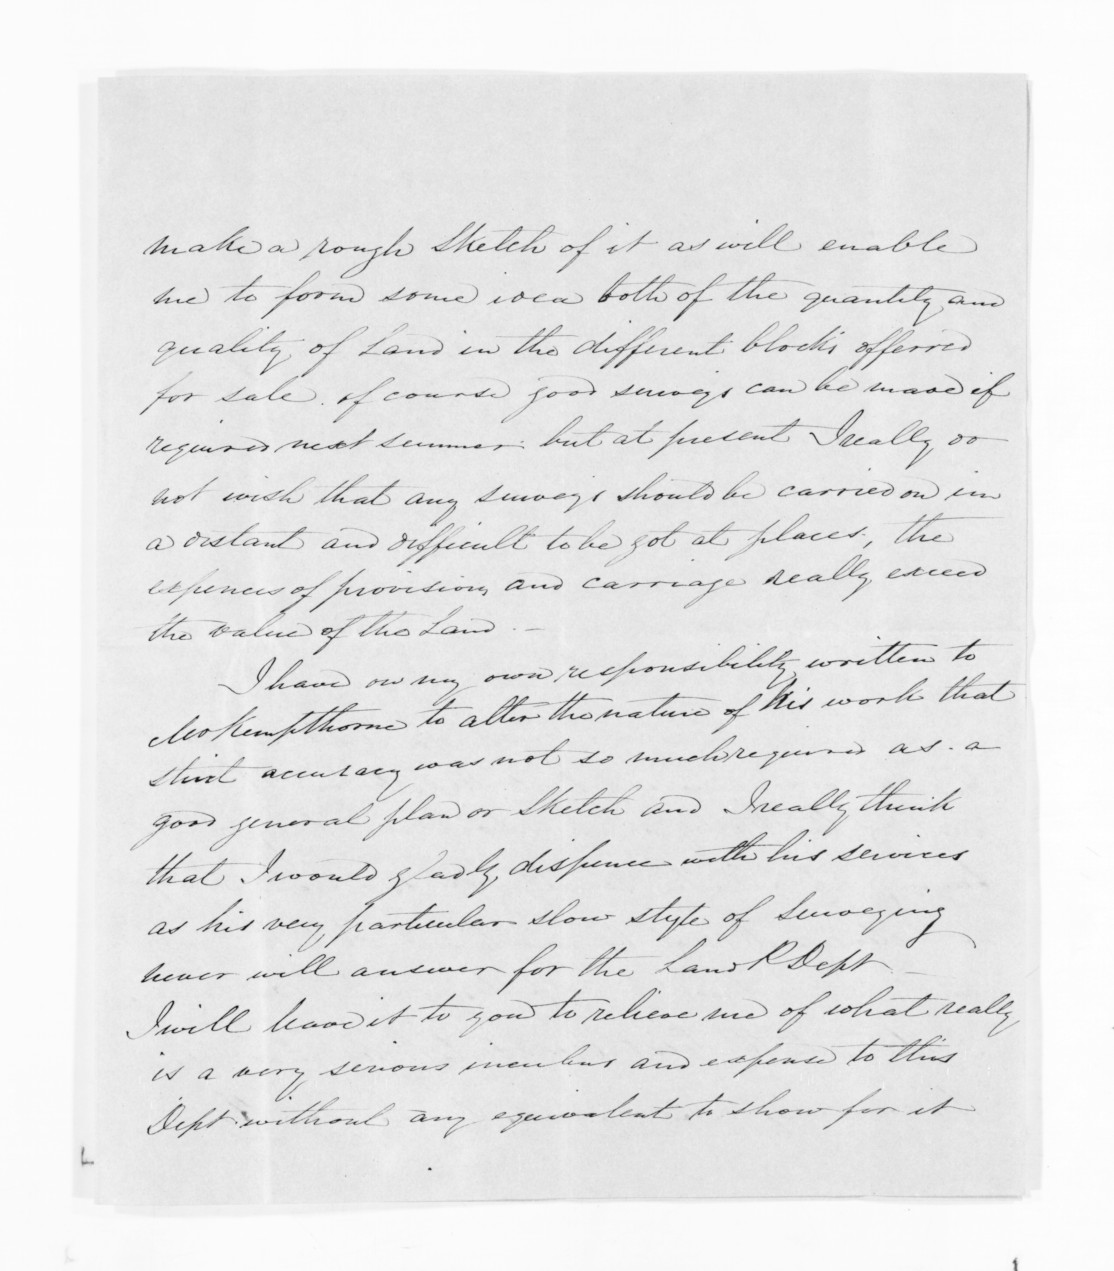 make a rough sketch of it as will enable
me to form some idea both of the quantity and
quality of Land in the different blocks offerred
for sale. of course good surveys can be made if
required next summer. but at present I really do
not wish that any surveys should be carried on in
a distant and difficult to be got at places, the
expences of provisions and carriage really exceed
the value of the Land. —
I have on my own responsibility written to
Mr Kempthorne to alter the nature of his work that
strict accuracy was not so much required as a
good general plan or sketch and I really think
that I would gladly dispence with his services
as his very particular slow style of surveying
never will answer for the Land P Dept —
I will leave it to you to relieve me of what really
is a very serious incubus and expense to this
Dept without any equivalent to show for it